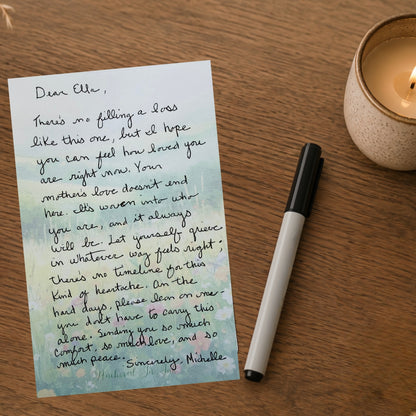 Dear Ella,
There's no filling a loss
like this one, but I hope
you can feel how loved you
are right now. Your
mother's love doesn't end
here. It's woven into who
you are, and it always
will be. Let yourself grieve
in whatever way feels right;
there's no timeline for this
kind of heartache. On the
hard days, please lean on me-
you don't have to carry this
alone. Sending you so much
comfort, so much love, and so
much peace.
Sincerely, Michelle